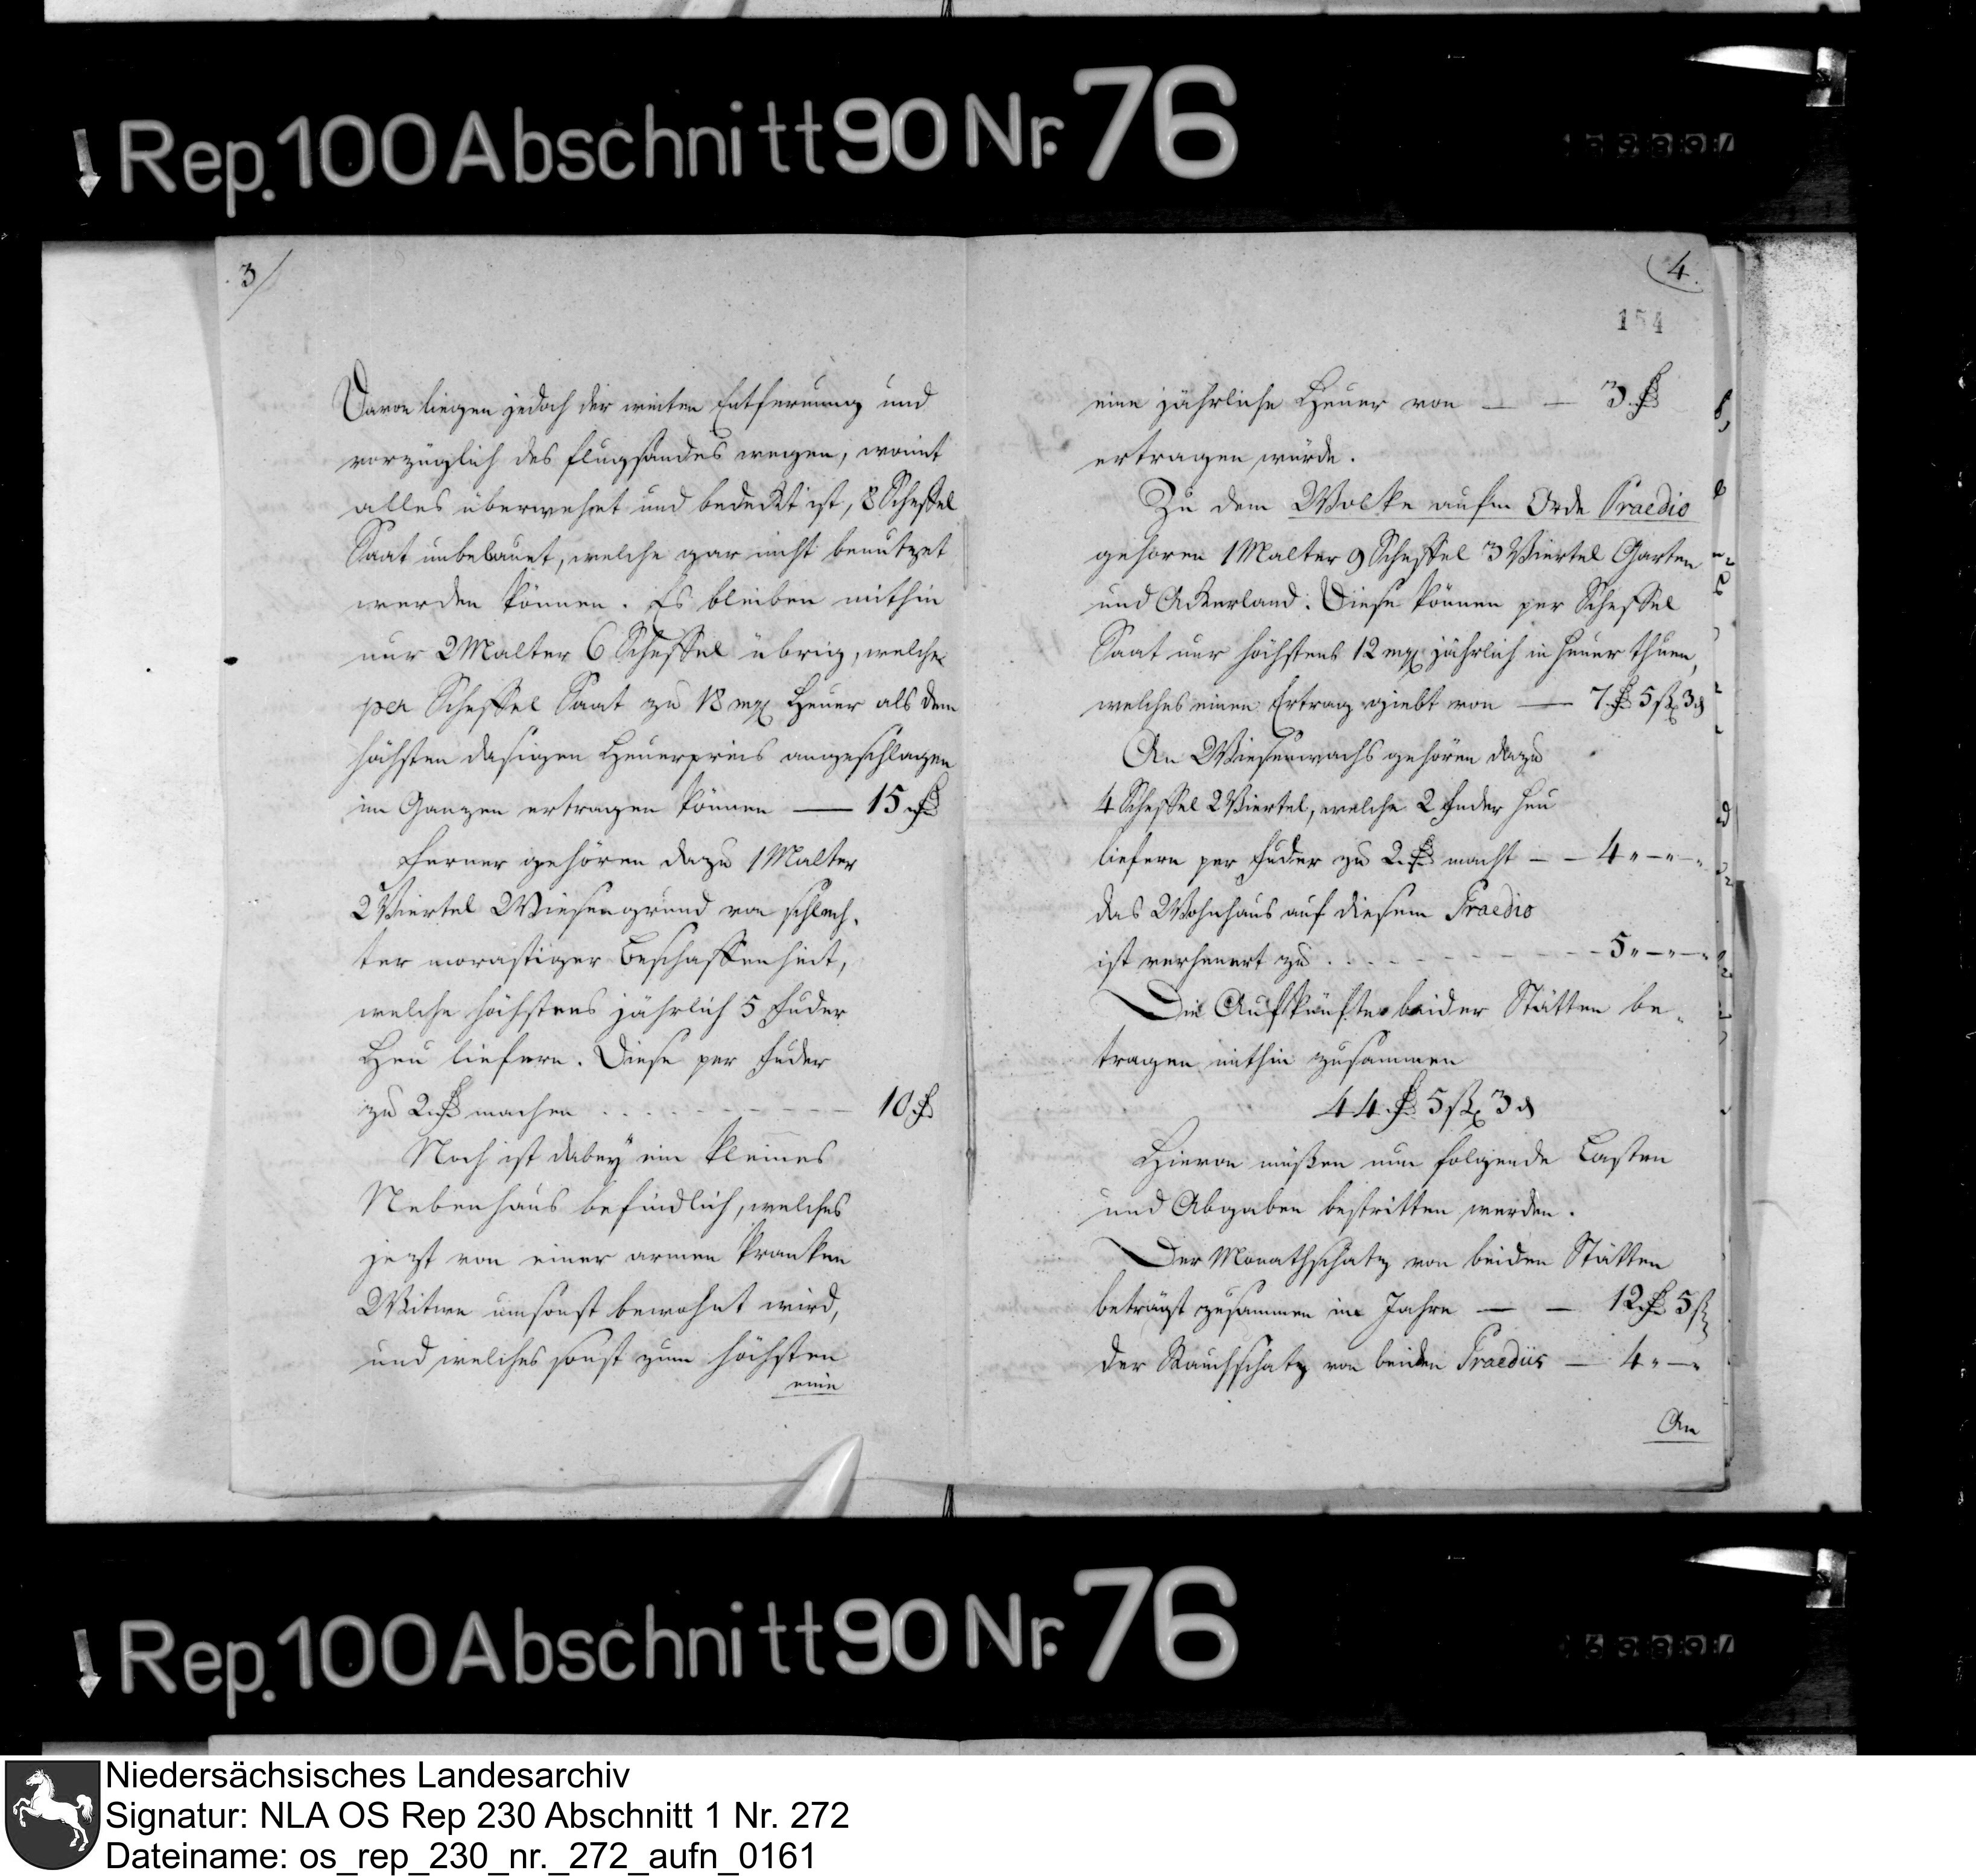 Rep. 100 Abschnitt 90 Nr. 76
3/
Davon liegen jedoch der weiten Entfernung und
vorzüglich des Flugsandes wegen, womit
alles überwehet und bedeckt ist, 8 Scheffel
Saat unbebauet, welche gar nicht benutzet
werden können. Es bleiben mithin
nur 2 Malter 6 Scheffel übrig, welche
per Scheffel Saat zu 18 mgr Heuer als dem
höchsten dasigen Heuerpreis angeschlagen
im Ganzen ertragen können — 15 rt
Ferner gehören dazu 1 Malter
2 Viertel Wiesengrund von schlech-
ter morastiger Beschaffenheit,
welche höchstens jährlich 5 Fuder
Heu liefern. Diese per Fuder
zu 2 rt machen . . . . - - - - - 10 rt
Noch ist dabey ein kleines
Nebenhaus befindlich, welches
jezt von einer armen kranken
Witwe umsonst bewohnt wird,
und welches sonst zum höchsten
eine
4.
154
eine jährliche Heuer von — — 3 rt
ertragen würde.
Zu dem Wolke aufm Orde Praedio
gehören 1 Malter 9 Scheffel 3 Viertel Garten
und Ackerland. Diese können per Scheffel
Saat nur höchstens 12 mgr jährlich in Heuer thuen,
welches einen Ertrag giebt von — 7 rt 5 ß 3 d
An Wiesenwachs gehören dazu
4 Scheffel 2 Viertel, welche 2 Fuder Heu
liefern per Fuder zu 2 rt macht — — 4 " — " — "
das Wohnhaus auf diesem Praedio
ist verheuert zu . . . - - - - - 5 " — " — "
Die Aufkünfte beider Stätten be-
tragen mithin zusammen
44 rt 5 ß 3 d
Hievon müßen nun folgende Lasten
und Abgaben bestritten werden.
Der Monathschatz von beiden Stätten
beträgt zusammen im Jahre — — 12 rt 5 ß
der Rauchschatz von beiden Praediis — 4 " — "
An
Rep. 100 Abschnitt 90 Nr. 76
Niedersächsisches Landesarchiv
Signatur: NLA OS Rep 230 Abschnitt 1 Nr. 272
Dateiname: os_rep_230_nr._272_aufn_0161